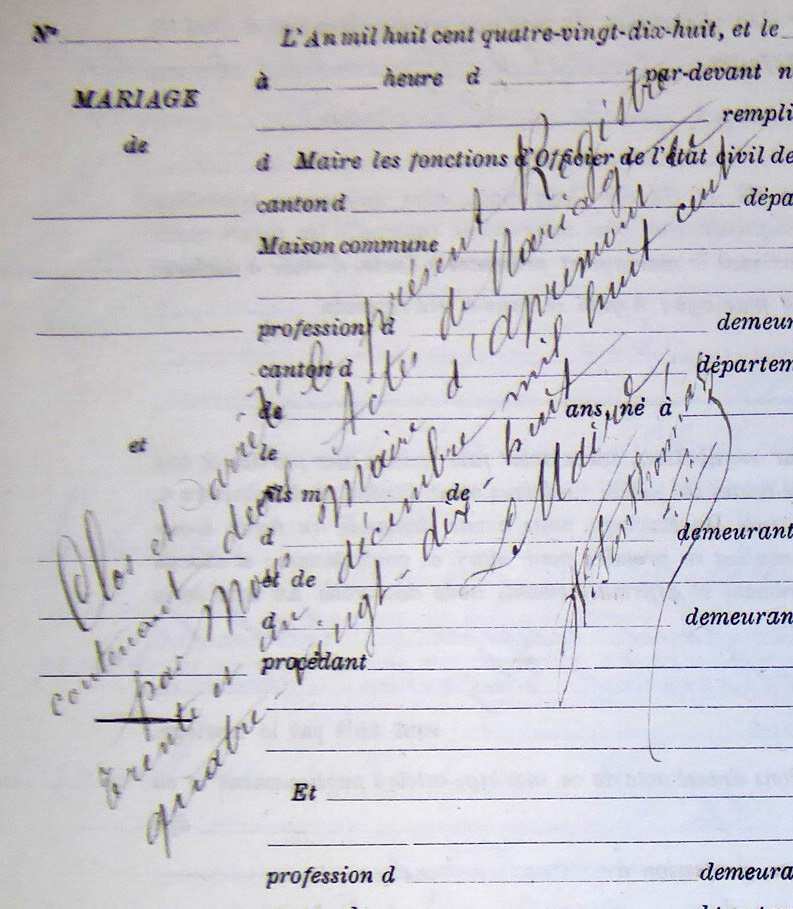 N°
L'An mil huit cent quatre-vingt-dix-huit, et le
à heure d par-devant n
MARIAGE
rempli
de
d Maire les fonctions d'Officier de l'état civil de
canton d dépa
Maison commune
profession d demeur
canton d départem
de ans, né à
et
le
fils m de
d demeurant
et de
d demeuran
procédant
Et
profession d demeura
Clos et arrêté le présent Registre
contenant Actes de Mariage
par Nous Maire d'Apremont
trente et un décembre mil huit cent
quatre-vingt-dix-huit
Le Maire